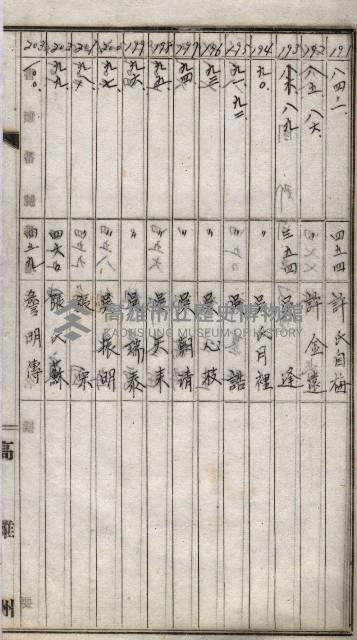 191 八四ノ二 四五四 許氏自梅
192 八五、八六 〃 許金遠
193 八九 三五四 吳逢
194 九〇 〃 吳氏月裡
195 九一、九二 〃 吳誥
196 九三 〃 吳心枝
197 九四 〃 吳朝清
198 九五 〃 吳天來
199 九六 〃 吳瑞泰
200 九七 〃 吳振明
201 九八 〃 張深
202 九九 四六〇 張氏蘇
203 一〇〇 四五九 詹明傳
高雄州
高雄市立歷史博物館
KAOHSIUNG MUSEUM OF HISTORY